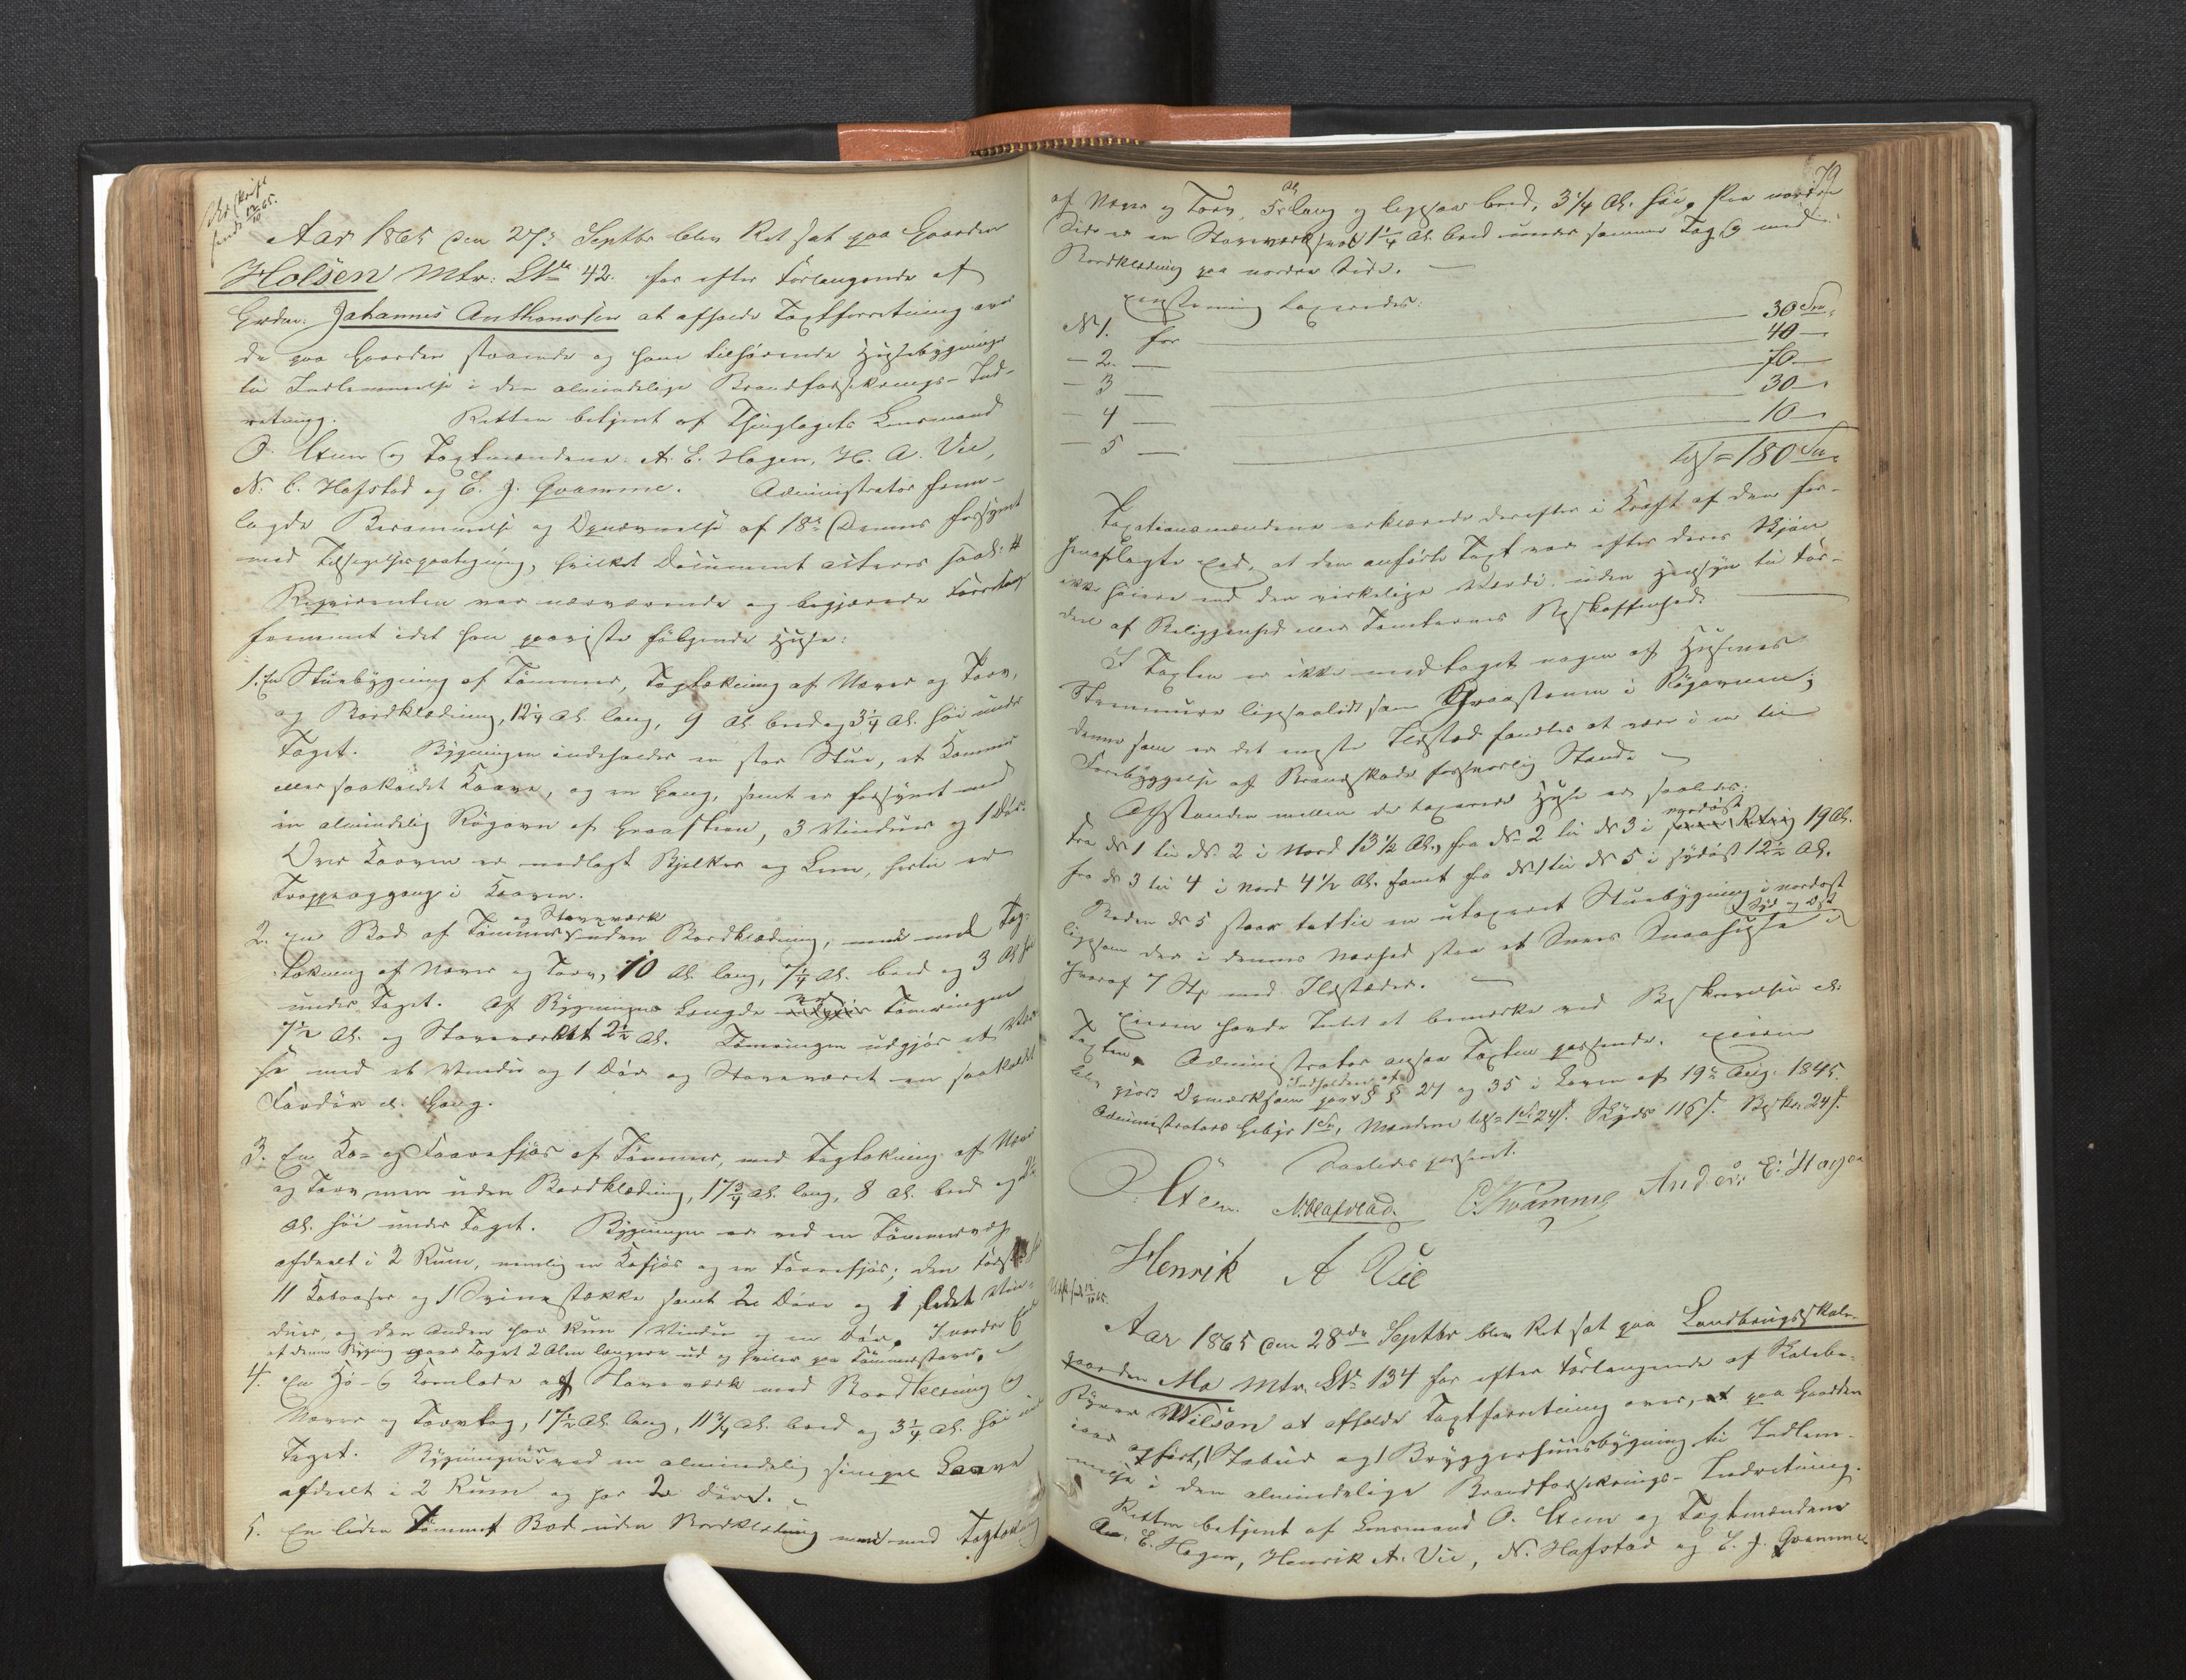 Udskrift
sendt 12/10 65.
Aar 1865 den 27de Septbr blev Ret sat paa Gaarden
Holsen Mtr: LNo 42. for efter Forlangende af
Grdm. Johannes Anthonsen at afholde Taxtforretning over
de paa Gaarden staaende og ham tilhørende Huusebygninger
til Indlemmelse i den almindelige Brandforsikrings-Ind-
retning. Retten betjent af Thinglagets Lensmand
O. Steen og Taxtmændene A. E. Hagen, H. A. Vie,
N. C. Hafstad og E. J. Qvamme. Administrator frem-
lagde Berammelse og Opnævnelse af 18de Dennes forsynt
med Tilsigelsespaategning, hvilket Document citeres saal: #
Reqvirenten var nærværende og begjærede Forretningen
fremmet idet han paaviste følgende Huse:
1. En Stuebygning af Tømmer, Tagtækning af Næver og Torv,
og Bordklædning, 12 1/4 Al. lang, 9 Al. bred og 3 1/4 Al. høi under
Taget. Bygningen indeholder en stor Stue, et Kammer
eller saakaldet Kaave, og en Gang, samt er forsynet med
en almindelig Røgovn af Graasteen, 3 Vinduer og 1 Dør.
Over Kaaven er nedlagt Bjelker og Lem, hertil er
Trappeopgang i Kaaven.
2. En Bod af Tømmer og Stavværk uden Bordklædning, men med Tag-
tækning af Næver og Torv, 10 Al. lang, 7 1/4 Al. bred og 3 Al. høi
under Taget. Af Bygningens Længde er Tømringen
7 1/2 Al. og Stavværket 2 1/2 Al. Tømringen udgjør et Væ-
se med et Vindu og 1 Dør og Stavværket en saakaldet
Fordør el. Gang.
3. En Ko- og Faarefjøs af Tømmer, med Tagtækning af Næver
og Torv men uden Bordklædning, 17 3/4 Al. lang, 8 Al. bred og
Al. høi under Taget. Bygningen er ved en Tømmervæg
afdeelt i 2 Rum, nemlig en Kofjøs og en Faarefjøs; den første har
11 Kobaaser og 1 Svinestække samt 2 Døre og 1 Vin-
duer, og den anden har kun 1 Vindu og en Dør. I nordre Ende
af denne Bygning gaar Taget 2 Alen længere ud og hviler paa Tømmerstaver.
4. En Hø- & Kornlade af Stavværk med Bordklædning og
Næver og Torvtag, 17 1/2 Al. lang, 11 3/4 Al. bred og 3 1/4 Al. høi under
Taget. Bygningen er ved en almindelig simpel Laave
afdeelt i 2 Rum og har 2 Døre.
5. En liden Tømmer Bod uden Bordklædning men med Tagtækning
79
af Næver og Torv, 5 Al. lang og ligesaa bred, 3 1/4 Al. høi, paa nordre
Side er en Stavværkssval 1 1/4 Al. bred under samme Tag og med
Bordklædning paa nordre Side.
Eensteming taxeredes:
No 1. for 30 Spd.
— 2. — 40 —
— 3 — 70 —
— 4 — 30 —
— 5 — 10 —
tils = 180 Spd.
Taxationsmændene erklærede derefter i Kraft af den for-
hen aflagte Eed, at den anførte Taxt var efter deres Skjøn
ikke høiere end den virkelige Værdi uden Hensyn til For-
deel af Beliggenhed eller Tomternes Beskaffenhed.
I Taxten er ikke medtaget nogen af Husenes
Steenmure ligesaalidt som Graasteenen i Røgovnen;
denne som er det eneste Ildsted fandtes at være i en til
Forebyggelse af Brandskade forsvarlig Stand.
Afstanden mellem de taxerede Huse er saaledes:
Fra No 1 til No 2 i Nord 13 1/2 Al., fra No 2 til No 3 i nordost 19 Al.
fra No 3 til 4 i Nord 4 1/2 Al. samt fra No 1 til No 5 i sydost 12 1/2 Al.
Boden No 5 staar tættil en utaxeret Stuebygning i nordost
ligesom der i dennes Nærhed staa et Snees Smaahuse i Syd og Øst
hvoraf 7 Stk med Ildsteder.
Eieren havde Intet at bemærke ved Beskrivelsen el.
Taxten. Administrator ansaa Taxten passende. Eieren
blev gjort Opmærksom paa Indholden af §§ 27 og 35 i Loven af 19de Aug. 1845.
Administrators Gebyr 1 Spd, Mændene tils = 1 Spd 24 s. Skyds 116 s. Beskr. 24 s.
Saaledes passeret.
O Steen. N. Hafstad. E Kvamme Anders E. Hagen
Henrik A Vie
Udsk. sendt 12/10 65.
Aar 1865 den 28de Septbr blev Ret sat paa Landbrugsskole-
gaarden Mo Mtr. LNo 134 for efter Forlangende af Skolebe-
styrer Wilson at afholde Taxtforretning over, paa Gaarden
opført, 1 Stabur og 1 Bryggerhuusbygning til Indlem-
melse i den almindelige Brandforsikrings-Indretning.
Retten betjent af Lensmand O. Steen og Taxtmændene
An. E. Hagen, Henrik A. Vie, N. Hafstad og E. J. Qvamme